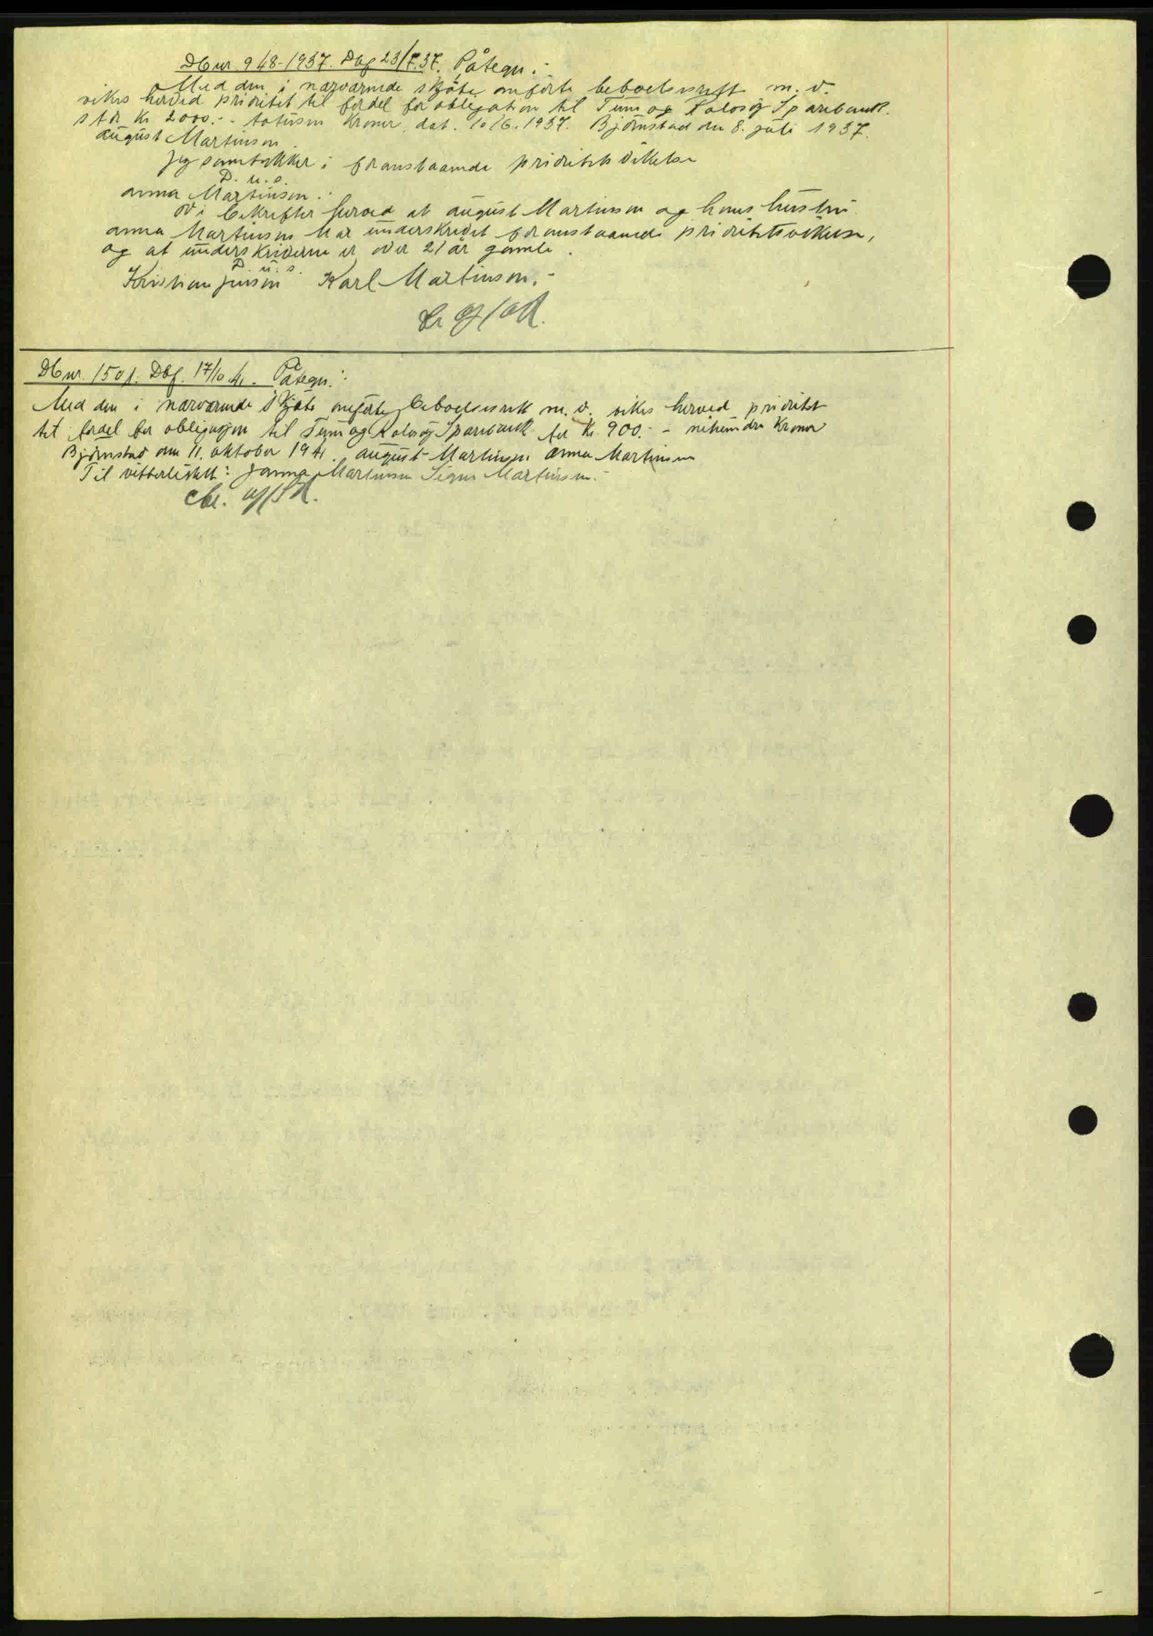 Db nr 948-1937. Dbf 23/7.37. Påtegn.:
Med den i nærværende skjöte anförte beboelsesrett m. v.
vikes herved prioritet til fordel for obligation til Tune og Rolvsöy Sparebank
stor kr 2000.- totusen kroner, dat. 10/6. 1937. Björnstad den 8. juli 1937.
August Martinsen
Jeg samtykker i foranstaaende prioritetsvikelse
D. u. s.
Anna Martinsen.
Vi bekrefter herved at August Martinsen og hans hustru
Anna Martinsen har underskrevet foranstaaende prioritetsvikelse,
og at underskriverne er over 21 år gamle.
D. u. s.
Kristian Jensen Karl Martinsen.-
Db nr. 1501. Dbf. 17/10.41. Påtegn.:
Med den i nærværende skjöte anförte beboelsesrett m. v. vikes herved prioritet
til fordel for obligasjon til Tune og Rolvsöy Sparebank for kr. 900.- nihundre kroner
Björnstad den 11. oktober 1941. August Martinsen Anna Martinsen
Til vitterlighet: Martinsen Signe Martinsen.-